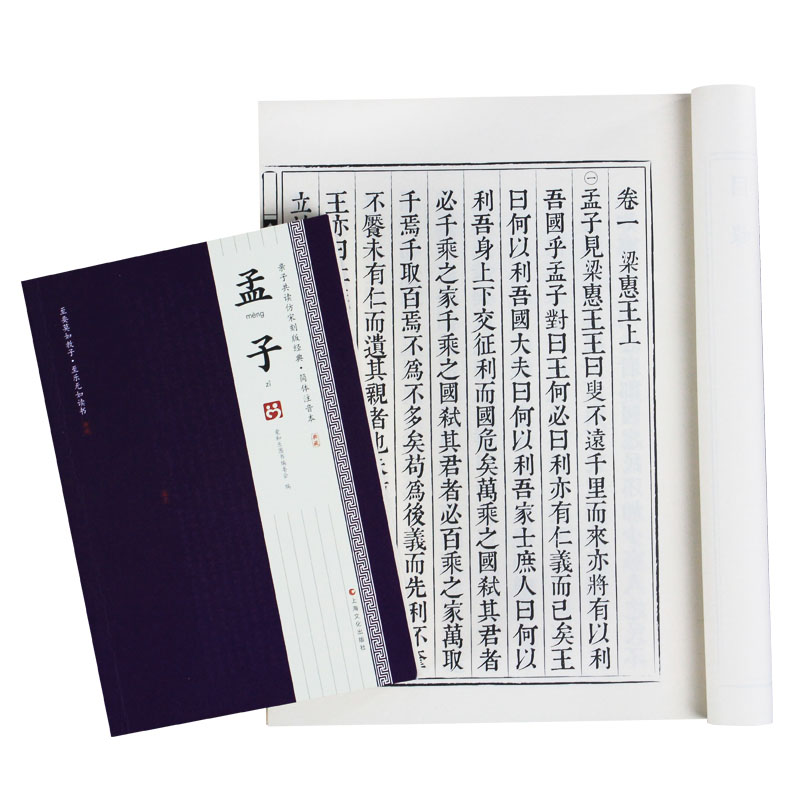 卷一 梁惠王上
㊀孟子見梁惠王王曰叟不遠千里而來亦將有以利
吾國乎孟子對曰王何必曰利亦有仁義而已矣王
曰何以利吾國大夫曰何以利吾家士庶人曰何以
利吾身上下交征利而國危矣萬乘之國弒其君者
必千乘之家千乘之國弒其君者必百乘之家萬取
千焉千取百焉不為不多矣苟為後義而先利不奪
不饜未有仁而遺其親者也
王亦曰仁
立
亲子共读仿宋刻版经典·简体注音本
典藏
孟子
mèng
zǐ
爱和美图书编委会 编
上海文化出版社
至要莫如教子·至乐无如读书